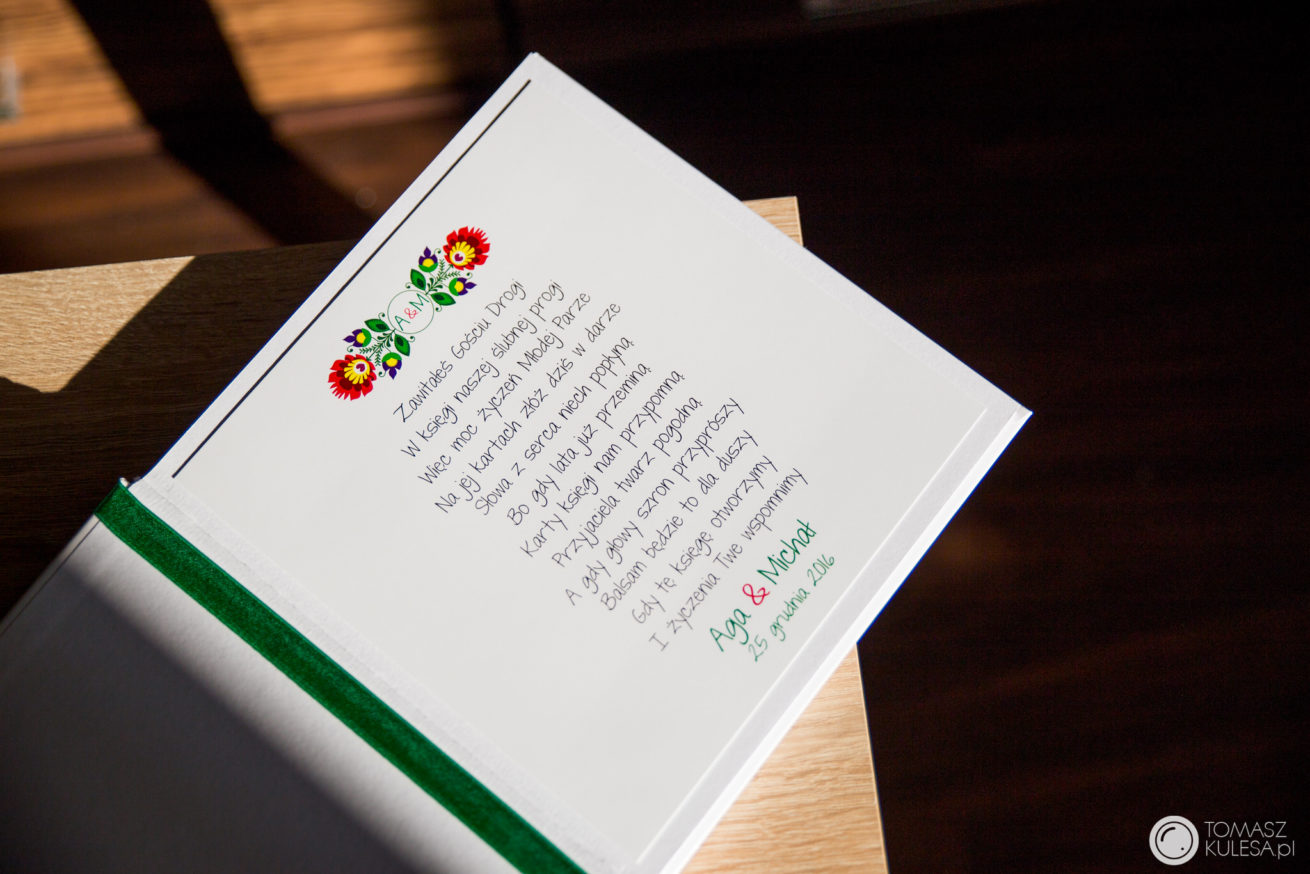 A & M
Zawitałeś Gościu Drogi
W księgi naszej ślubnej progi
Więc moc życzeń Młodej Parze
Na jej kartach złóż dziś w darze
Słowa z serca niech popłyną
Bo gdy lata już przeminą
Karty księgi nam przypomną
Przyjaciela twarz pogodną
A gdy głowy szron przyprószy
Balsam będzie to dla duszy
Gdy tę księgę otworzymy
I życzenia Twe wspomnimy
Aga & Michał
25 grudnia 2016
TOMASZ
KULESA.pl